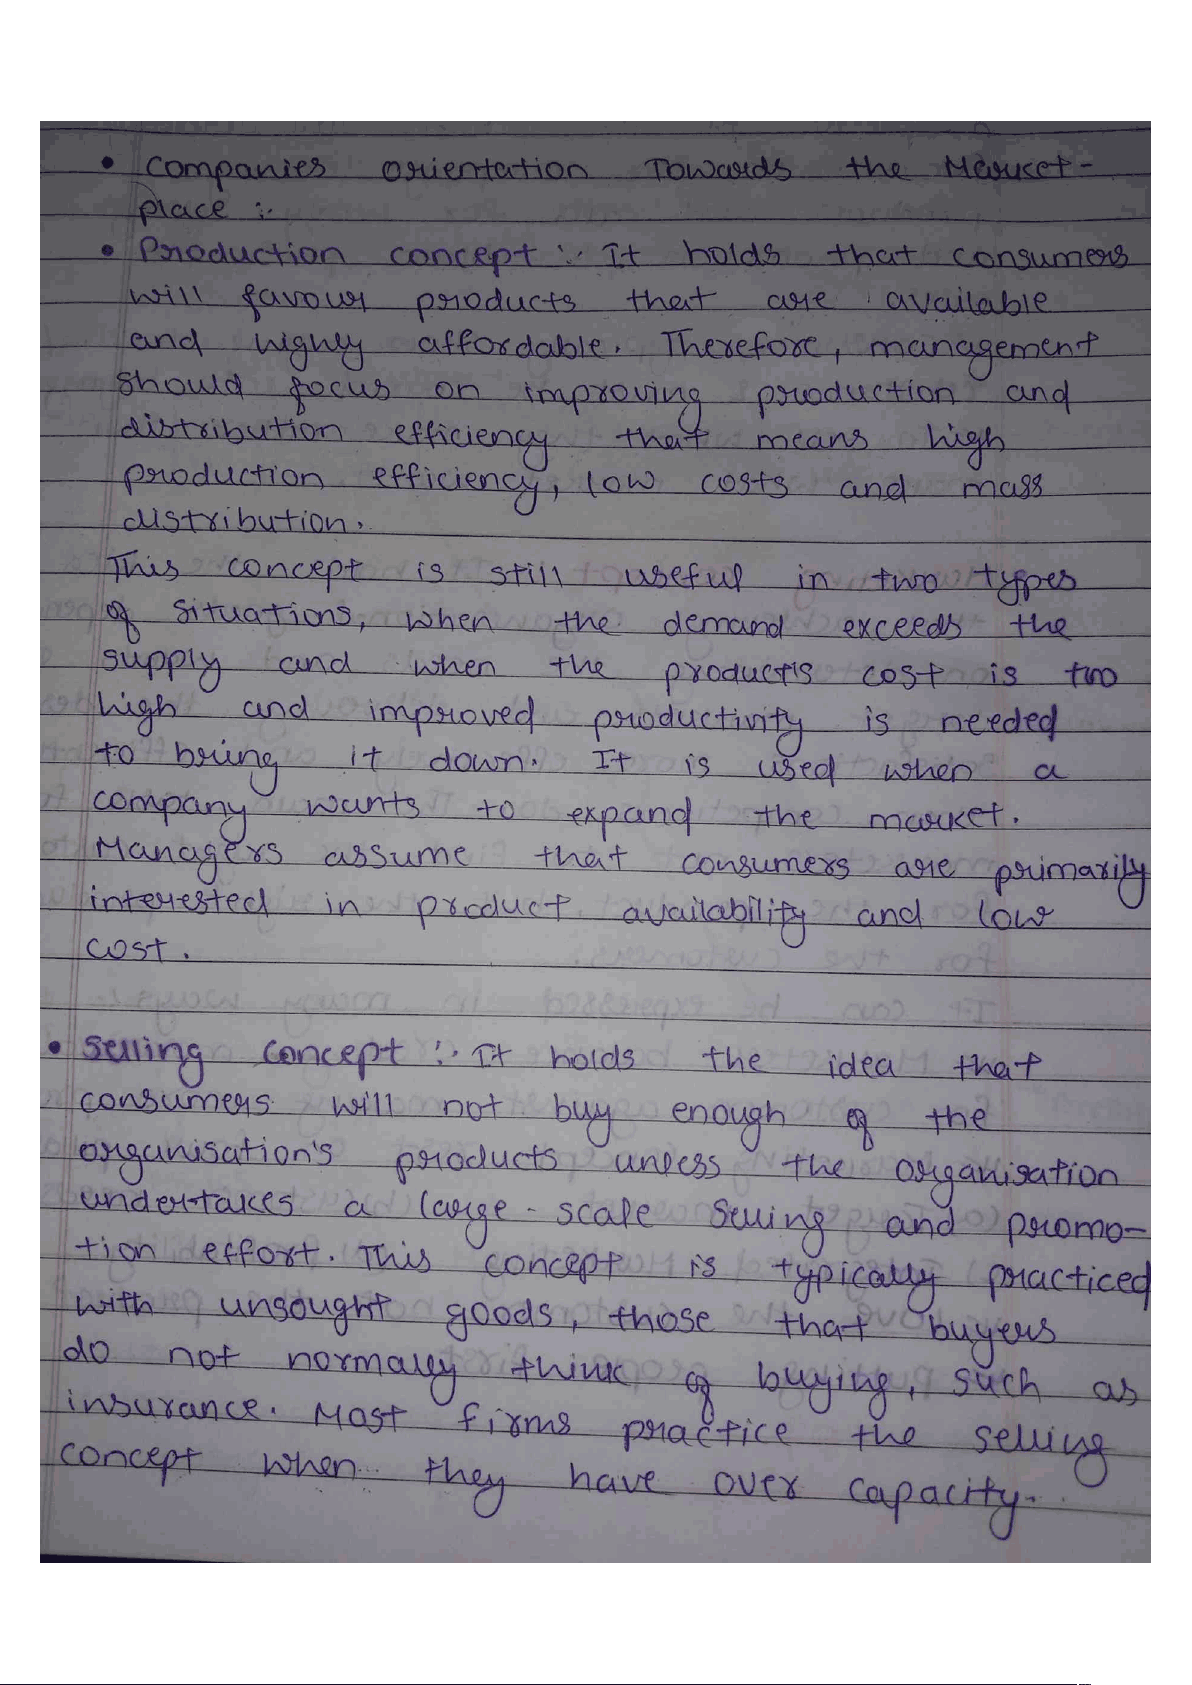 • Companies orientation Towards the Market-
place :-
• Production concept :- It holds that consumers
will favour products that are available
and highly affordable. Therefore, management
should focus on improving production and
distribution efficiency that means high
production efficiency, low costs and mass
distribution.
This concept is still useful in two types
of situations, when the demand exceeds the
supply and when the product's cost is too
high and improved productivity is needed
to bring it down. It is used when a
company wants to expand the market.
Managers assume that consumers are primarily
interested in product availability and low
cost.
• Selling concept :- It holds the idea that
consumers will not buy enough of the
organisation's products unless the organisation
undertakes a large-scale selling and promo-
tion effort. This concept is typically practiced
with unsought goods, those that buyers
do not normally think of buying, such as
insurance. Most firms practice the selling
concept when they have over capacity.